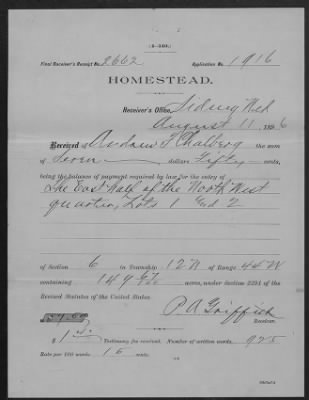 Final Receiver's Receipt No. 2662 Application No. 1916
HOMESTEAD.
Receiver's Office, Sidney Neb
August 11, 1896
Received of Andrew F Chalberg the sum
of Seven dollars Fifty cents,
being the balance of payment required by law for the entry of
The East half of the North West
quarter, Lots 1 and 2
of Section 6 in Township 12 N of Range 44 W
containing 149 acres, under Section 2291 of the
Revised Statutes of the United States.
P. A. Griffith
Receiver.
$1 Testimony fee received. Number of written words, 925
Rate per 100 words 15 cents.